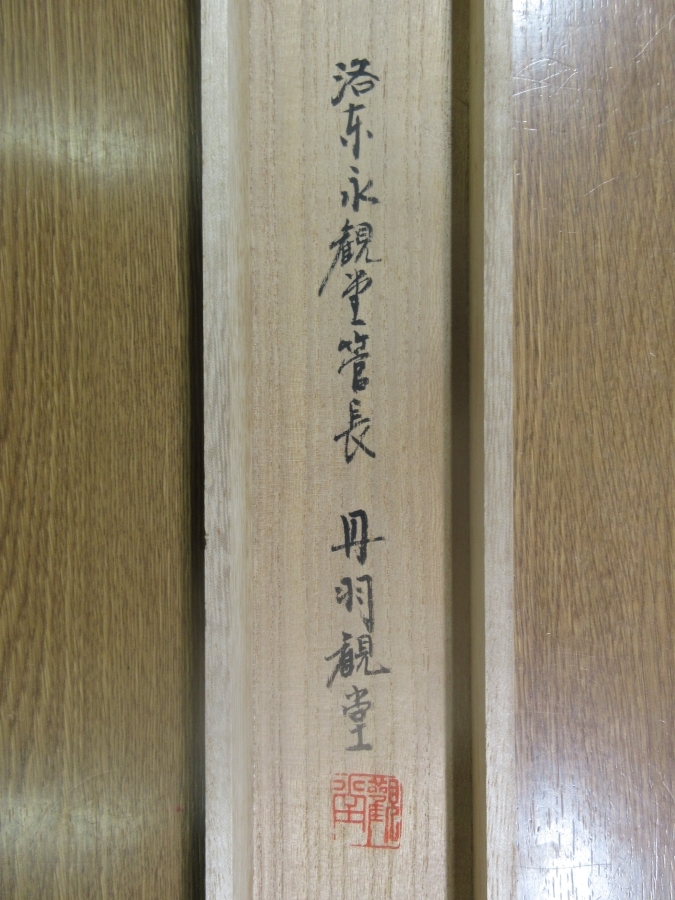 洛东永観堂管長　丹羽観堂
觀堂